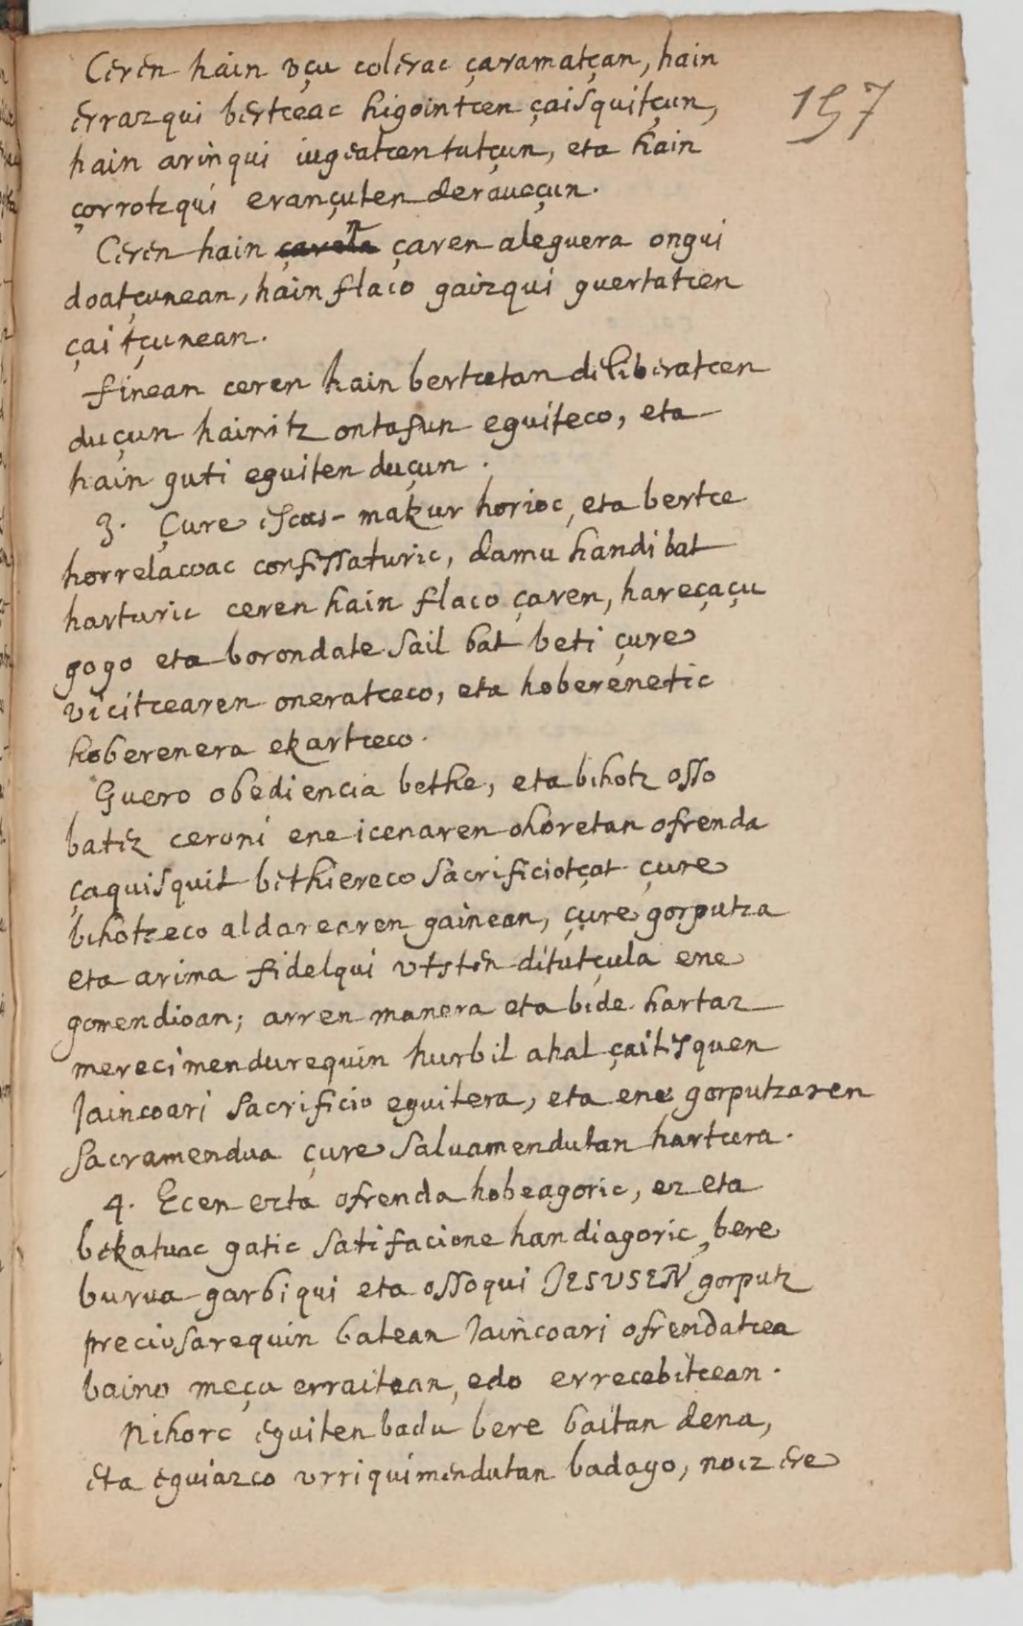 Ceren hain vçu colerac çaramatçan, hain
errazqui bertceac higointcen çaisquitçun,
157
hain arinqui iugeatcen tutçun, eta hain
çorrotzqui erançuten deraueçun.
Ceren hain çaren aleguera ongui
doatçunean, hain flaco gaizqui guertatcen
çaitçunean.
finean ceren hain bertcetan deliberatcen
duçun hainitz ontasun eguiteco, eta
hain guti eguiten duçun.
3. Çure escas-makur horioc, eta bertce
horrelacoac confissaturic, damu handi bat
harturic ceren hain flaco çaren, hareçaçu
gogo eta borondate sail bat beti çure
vicitcearen oneratceco, eta hoberenetic
hoberenera ekartceco.
Guero obediencia bethe, eta bihotz osso
batez ceroni ene icenaren ohoretan ofrenda
çaquisquit bethiereco Sacrificiotçat çure
bihotzeco aldarearen gainean, çure gorputza
eta arima fidelqui vtsten ditutçula ene
gomendioan; arren manera eta bide hartaz
merecimendurequin hurbil ahal çaitisquen
Jaincoari Sacrificio eguitera, eta ene gorputzaren
Sacramendua çure Saluamendutan hartcera.
4. Ecen ezta ofrenda hobeagoric, ez eta
bekatuac gatic satifacione handiagoric, bere
burua garbiqui eta ossoqui JESUSEN gorputz
preciosarequin batean Jaincoari ofrendatcea
baino meça erraitean, edo errecebitcean.
Nihorc eguiten badu bere baitan dena,
eta eguiazco vrriquimendutan badago, noiz ere